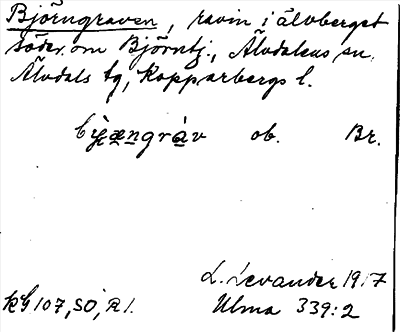 Björngraven, ravin i älvberget
söder om Björntj., Älvdalens sn.
Älvdals tg, Kopparbergs l.
ob. Br.
L. Levander 1917
kG 107, SO, R 1. Ulma 339:2